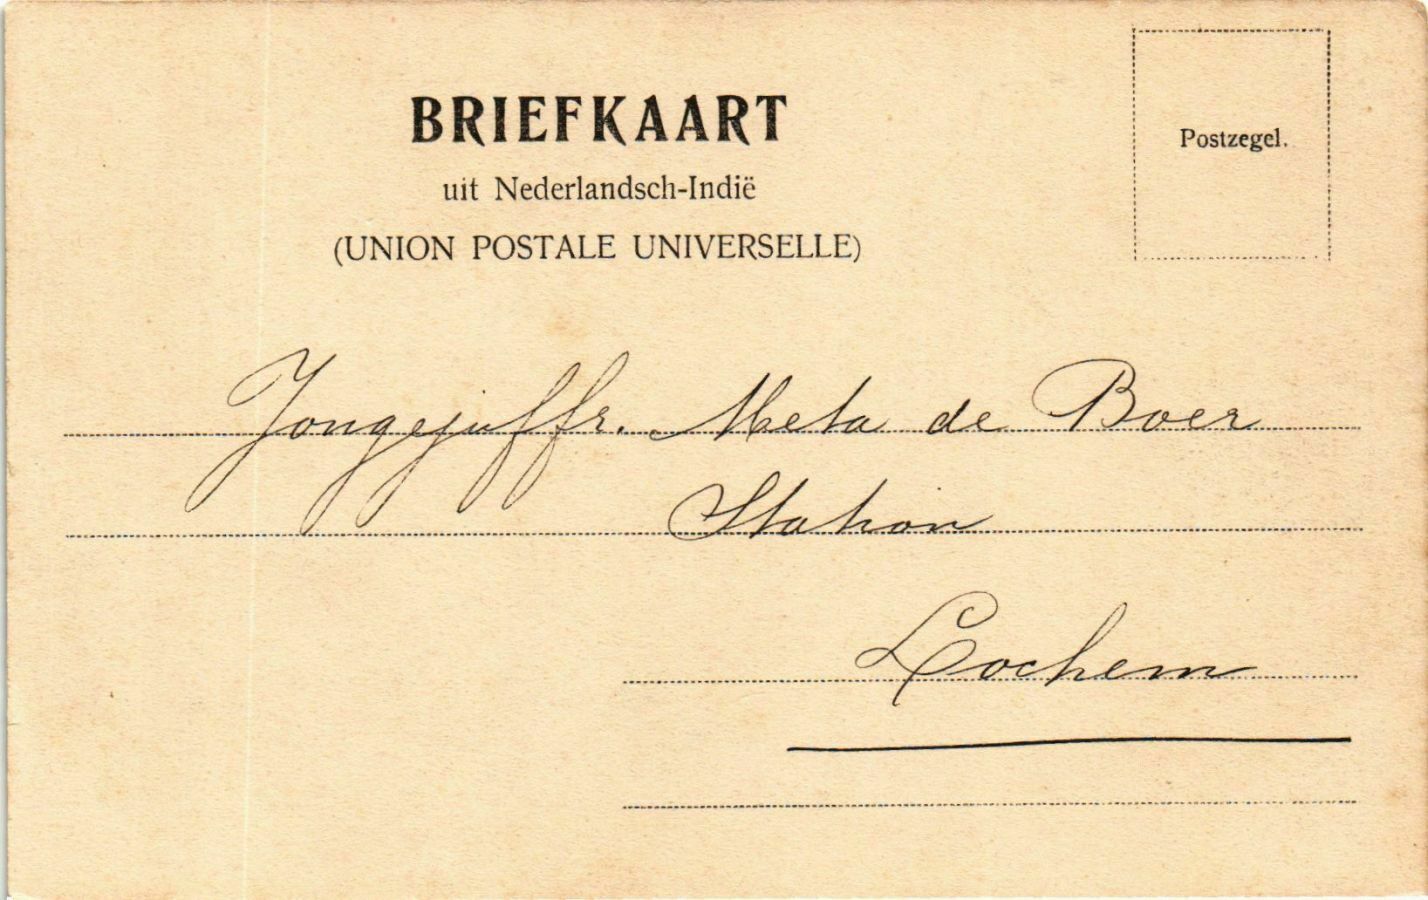 BRIEFKAART
uit Nederlandsch-Indië
(UNION POSTALE UNIVERSELLE)
Postzegel.
Jongejuffr. Meta de Boer
Station
Lochem